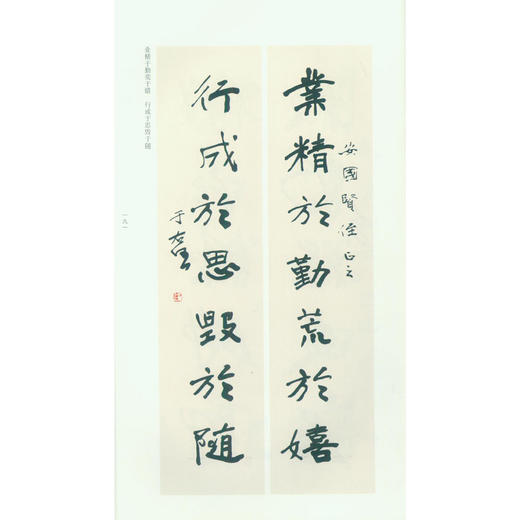 業精於勤荒於嬉
安國賢侄正之
行成於思毀於隨
于右任
业精于勤荒于嬉　行成于思毁于随
一八一